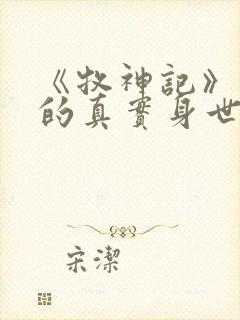 《牧神記》
的真實身世
宋潔